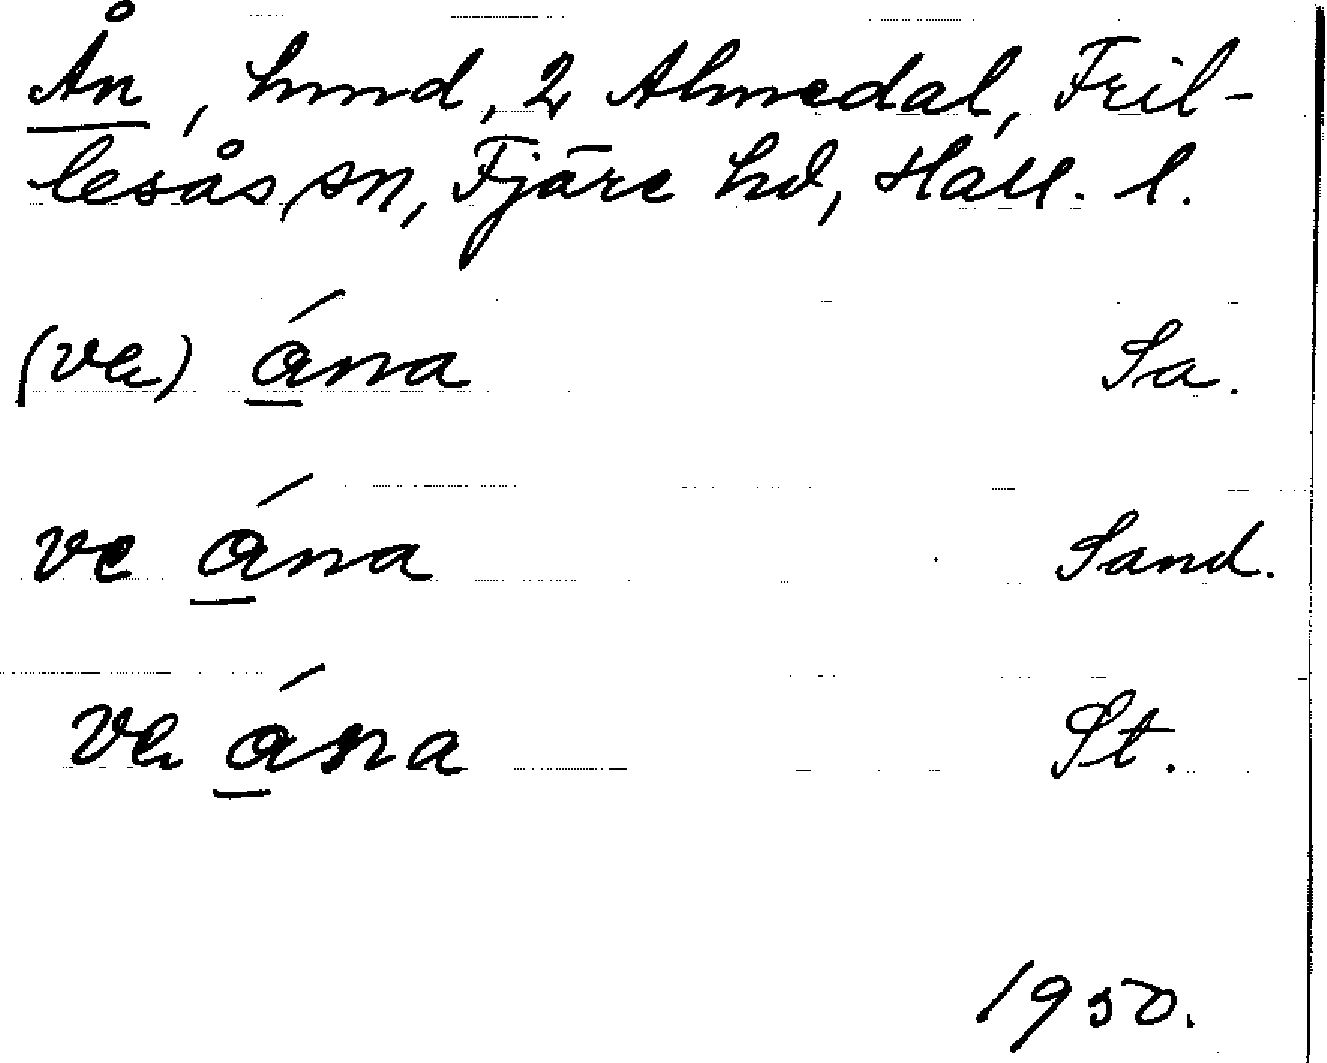 Ån, hmd, 2 Almedal, Fril-
lesås sn, Fjäre hd, Hall. l.
(ve) ána Sa.
ve ána Sand.
ve ána St.
1950.